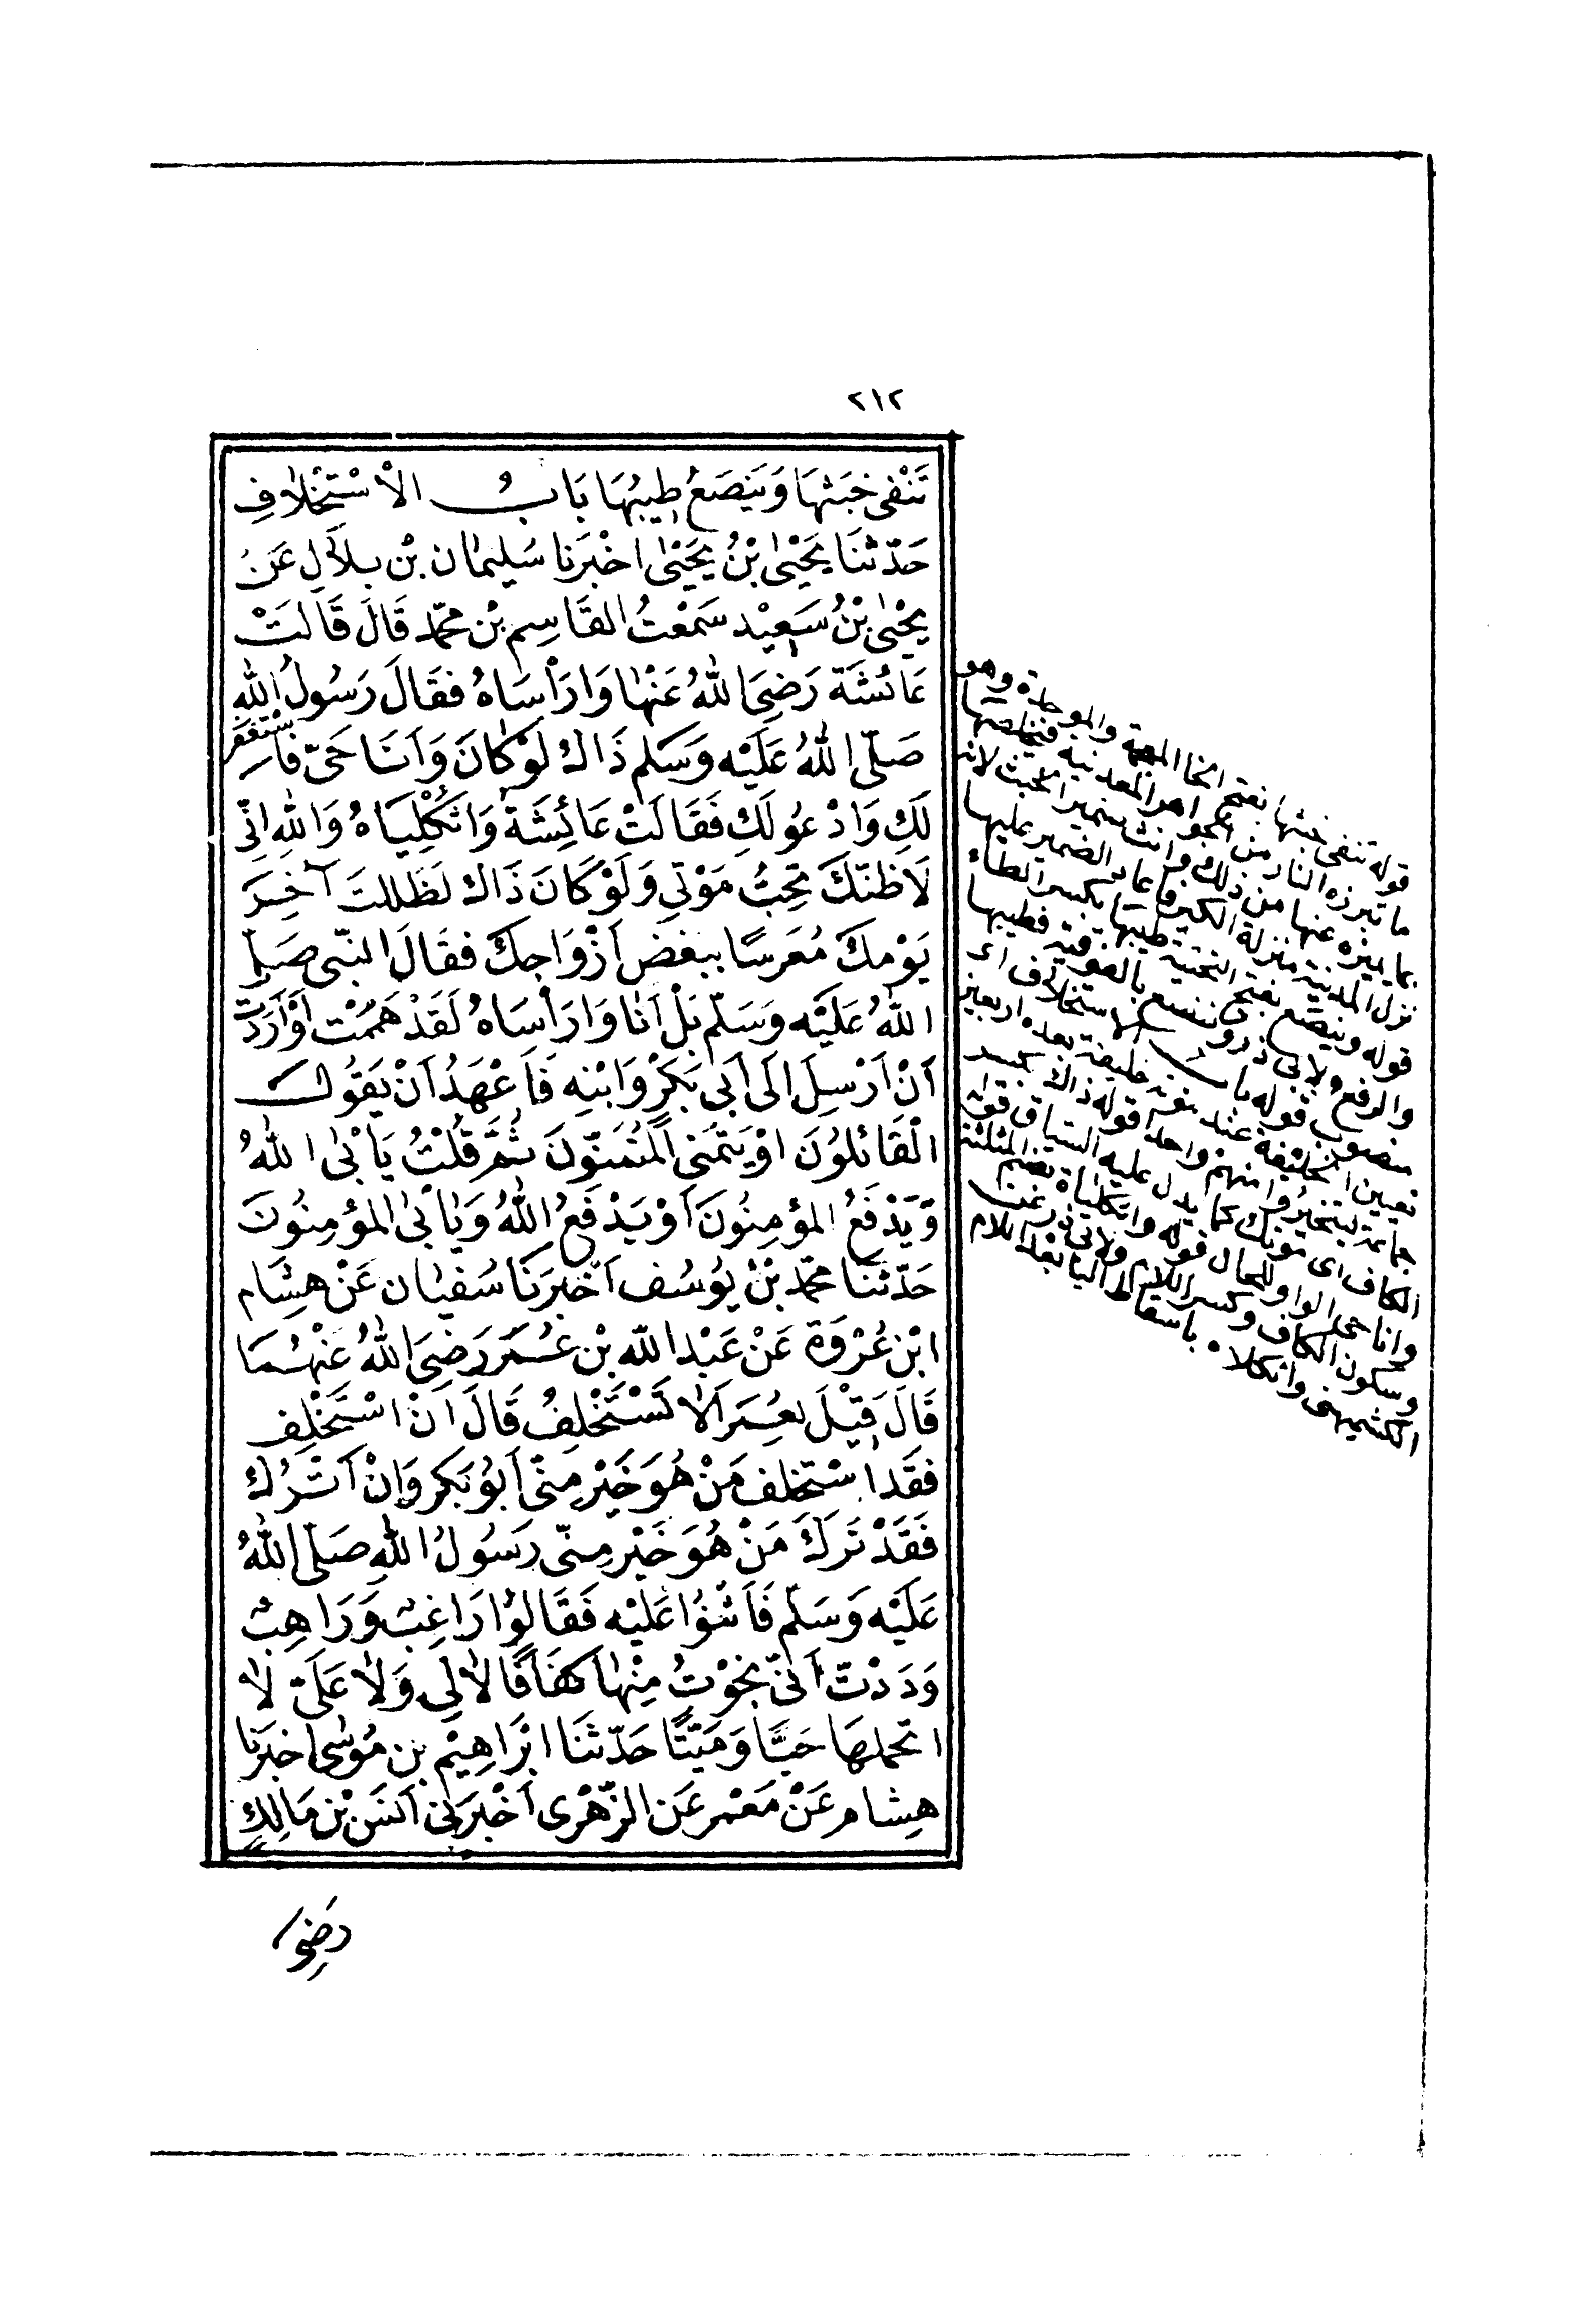 ٢١٢
تَنْفى خبَثهَا وَيَنصَعُ طِيبُهَا بَابُ الاْسْتِخْلافِ
حَدّثنَا يَحْيٰى بْنُ يَحْيٰى اخْبَرَنا سُليمٰان بْن بِلَالٍ عَنْ
يحْيٰى بْنُ سَعِيْد سَمعْتُ القَاسِم بْن محمّد قَالَ قَالَتْ
عَائشَة رَضِيَ اللهُ عَنْهٰا وَارَأْسَاهُ فقَالَ رَسُولُ اللهِ
صَلّى اللهُ عَلَيْه وَسَلم ذَاك لَوْ كَانَ وَاَنَا حَيّ فَاسْتَغْفِر
لَكِ وَادْعُو لَكِ فَقَالَتْ عَائِشَة وَاثكْلِيَاهُ وَاللهِ اِنّى
لَاظنّكَ تحِبُّ مَوْتِي وَلَوْ كَانَ ذَاك لَظَللتَ آخِرَ
يَوْمِكَ مُعَرسًا ببَعْضِ اَزْوَاجِكَ فقَالَ النّبى صَلى
اللهُ عَلَيْه وَسَلّم بَلْ اَنَا وَارَأْسَاهُ لَقَدْ هَمَمْت اَوْ اَرَدْتُ
اَنْ اُرْسِلَ اِلَى اَبى بَكْرٍ وَابْنِهِ فَاَعْهَدُ اَنْ يَقُولَ
الْقَائلُونَ اوْ يَتمَنى الْمُتَمَنّونَ ثُمَّ قُلْتُ يَأْبٰى اللهُ
وَيَدْفَعُ المؤمِنُونَ اَوْ يَدْفَعُ اللهُ وَيَأْبٰى المؤمِنُونَ
حَدّثنَا محمّد بْنُ يوُسُف اَخْبرَنَا سُفيٰان عَنْ هشَام
ابْن عُرْوَة عَنْ عَبْد الله بْن عُمَر رَضِىَ اللهُ عَنْهُمَا
قَالَ قِيْلَ لعُمَر اَلاٰ تَسْتَخْلِفُ قَالَ اَنْ اسْتَخْلِف
فقَد اسْتخلف مَنْ هُوَ خَيْر مِنّى اَبوُ بَكر وَاِنْ اَتْرُك
فَقَدْ تَرَكَ مَنْ هُوَ خَيْر مِنّى رَسُولُ اللهِ صَلّى اللهُ
عَلَيْه وَسَلّم فَاَثنَوْا عَلَيْه فَقَالوُا رَاغِبٌ وَرَاهِبٌ
وَدَدْتّ اَنّى نجَوْتُ مِنْهٰا كفَافًا لاٰ لِي وَلاٰ عَلَىّ لاٰ
اتحملهَا حَيًّا وَمَيّتًا حَدّثنَا ابْرَاهِيْم بن مُوسٰى اخبَرَنا
هِشام عَنْ مَعْمر عَن الزّهْرى اَخْبرَنى اَنَس بْن مَالِكٍ
رَضِىَ
قوله تنفى خبثها بفتح الخا المعجمة والموحدة وهو
ما تبرزه النار من الجواهر المعدنية فيخلصها
بما يميزه عنها من ذلك وانث ضمير الخبث لانه
نزل المدينة منزلة الكير فاعاد الضمير عليها
قوله وينصع بفتح التحتية طيبها بكسر الطاء
والرفع ولابى ذر وتنصع بالفوقية فطيبها
منصوب قوله باب الاستخلاف اى
تعيين الخليفة عند موته خليفة بعده او يعين
جماعة ليتخيروا منهم واحدا قوله ذاك بكسر
الكاف اى موتك كما يدل عليه السياق قوله
وانا حى الواو للحال قوله واثكلياه بضم المثلثة
وسكون الكاف وكسر اللام ولابى ذر عن
الكشميهنى واثكلاه باسقاط اليا بعد اللام